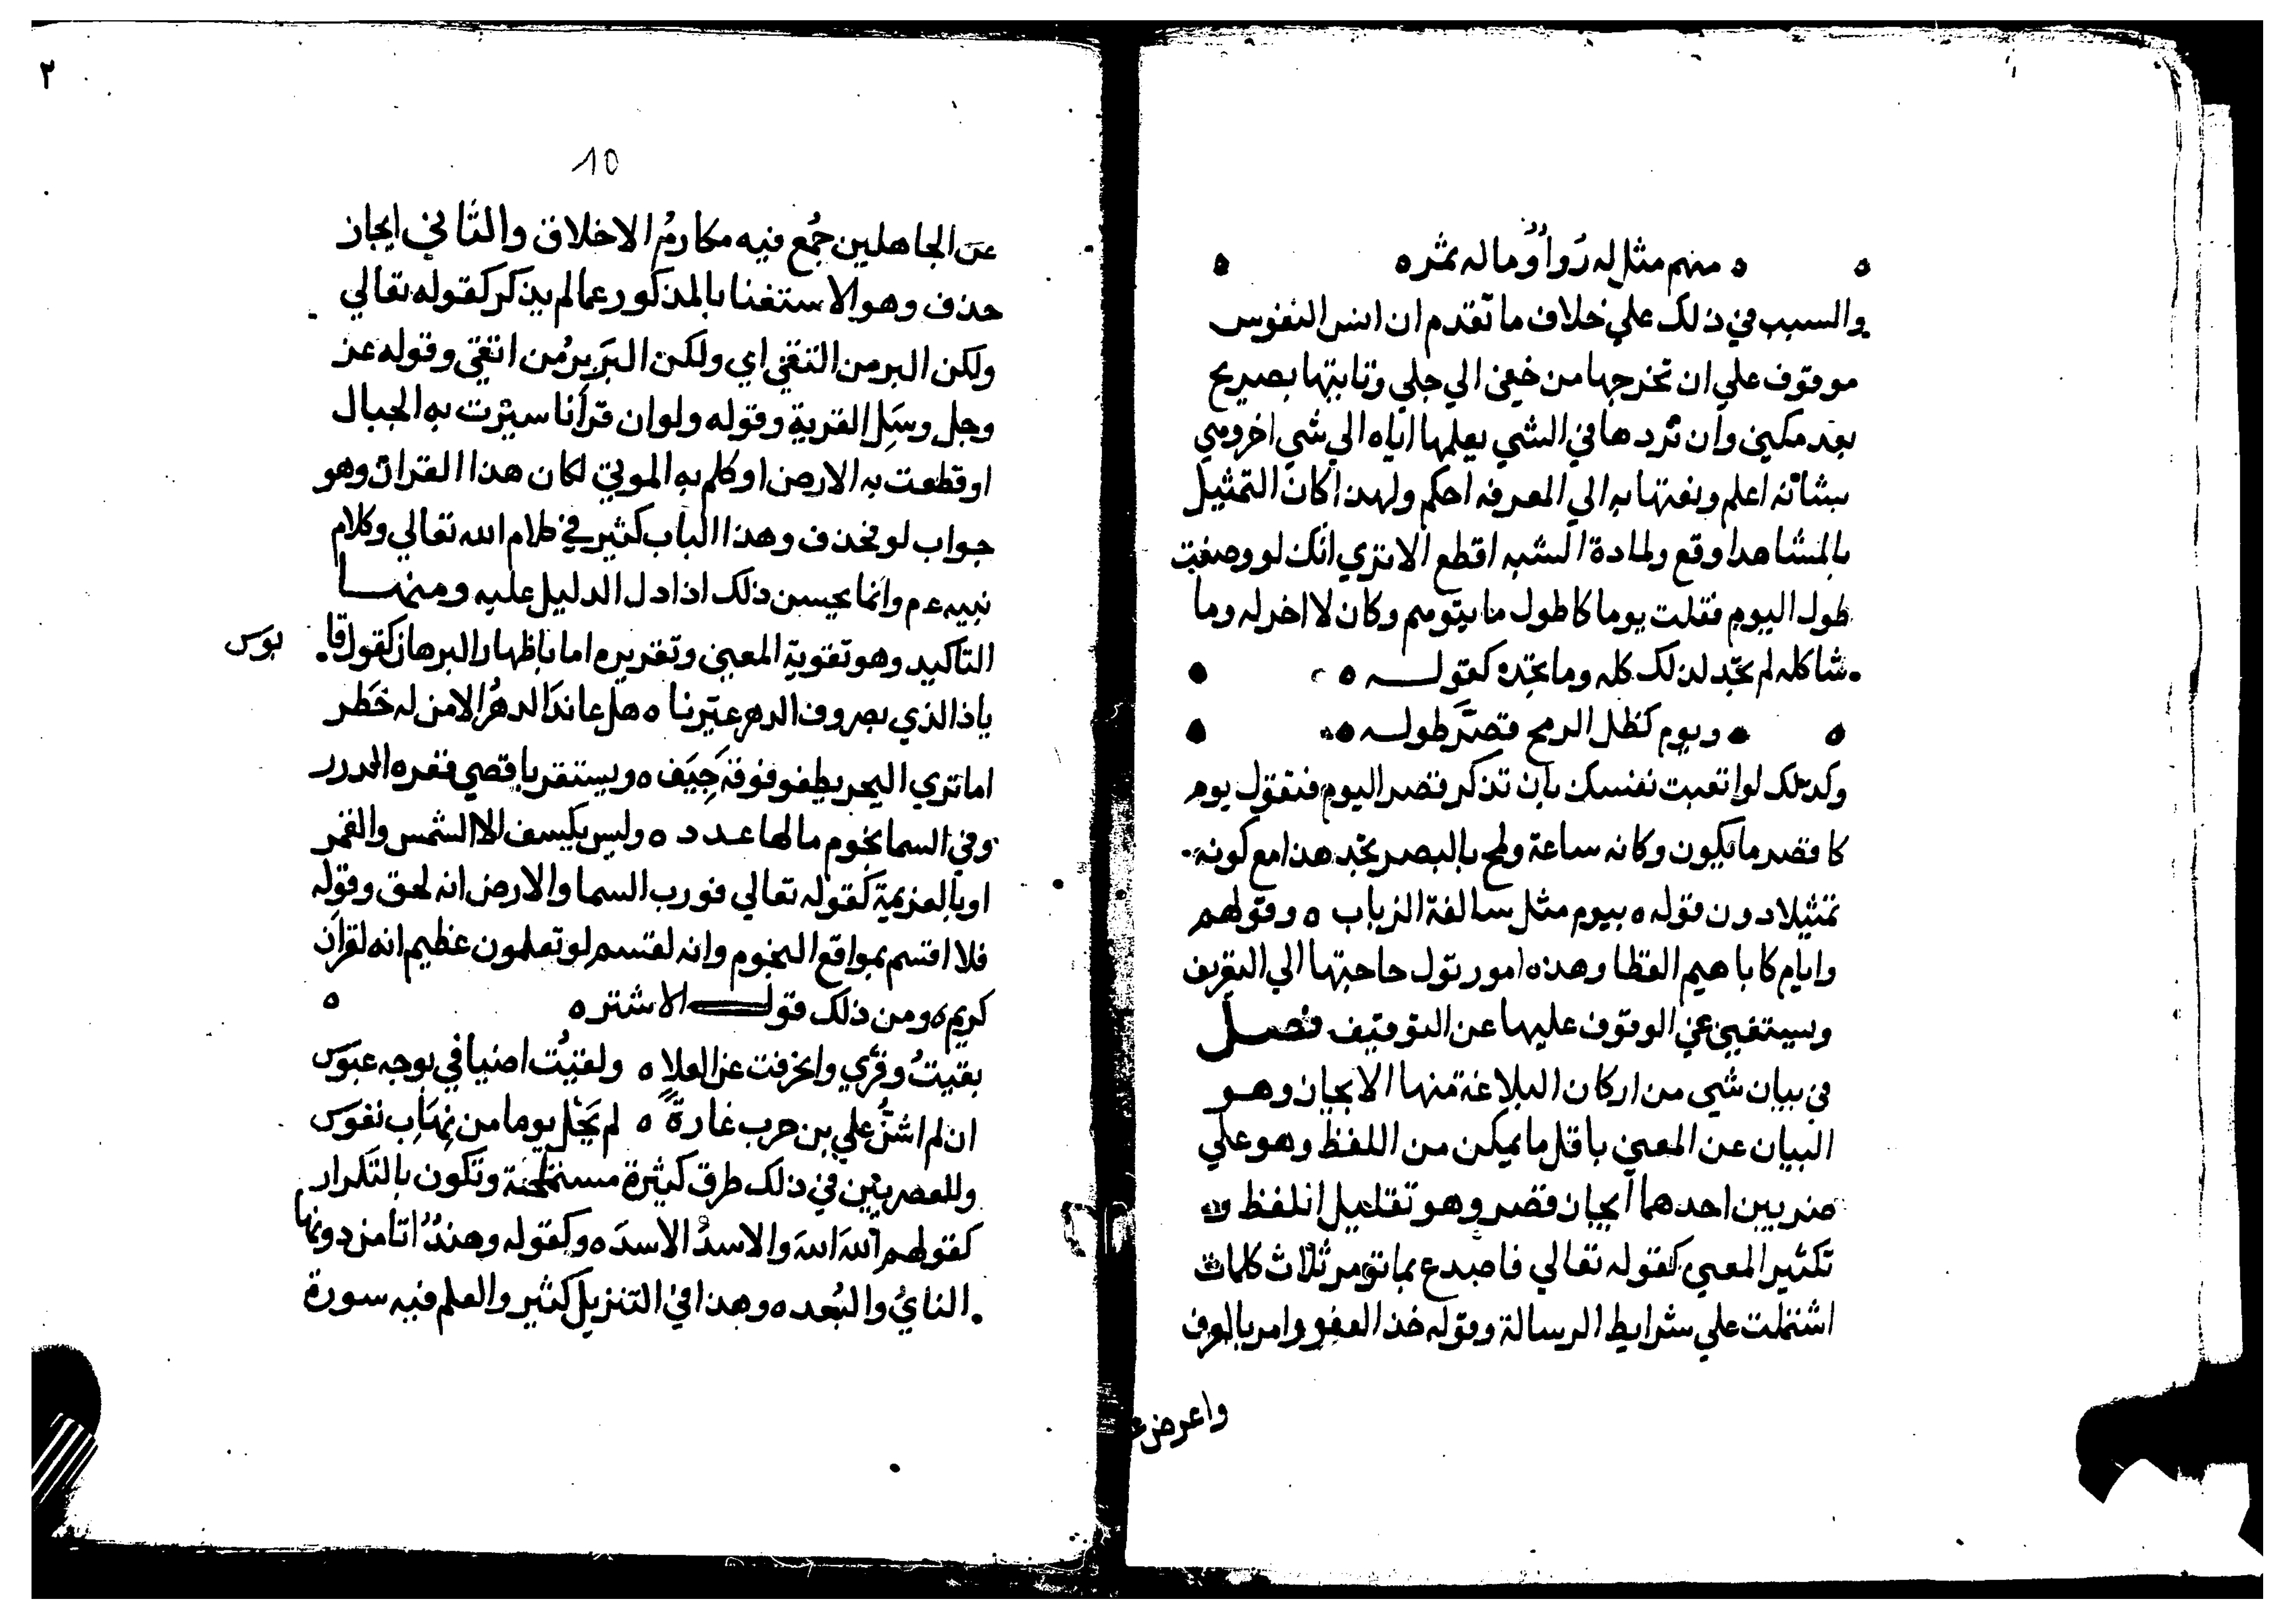 منهم مثل له رُواٌ وما له ثمر ه
والسبب في ذلك علي خلاف ما تقدم ان انس النفوس
موقوف علي ان تخرجها من خفي الي جلي وتاتيها بصريح
بعد مكني وان تردها في الشي يعلمها اياه الي شي اخر وهي
بشانه اعلم وثقتها به الي المعرفه احكم ولهذا كان التمثيل
بالمشاهد اوقع ولمادة الشبه اقطع الا تري انك لو وصفت
طول اليوم فقلت يوما كاطول ما يتوهم وكان لا اخر له وما
شاكله لم تجد لذلك كله وما تجده كقولـــه ه
ويوم كظل الرمح قصَّر طولــه ه
وكذلك لو اتعبت نفسك بان تذكر قصر اليوم فتقول يوم
كاقصر ما يكون وكانه ساعة ولمح بالبصر تجد هذا مع كونه
تمثيلا دون قوله ه بيوم مثل سالفة الزباب ه وقولهم
وايام كاباهيم القطا وهذه امور تول حاجتها الي التعريف
وسيتغني عن الوقوف عليها عن التوقيف فصـــل
في بيان شي من اركان البلاغة منها الايجاز وهــو
البيان عن المعني باقل ما يمكن من اللفظ وهو علي
ضربين احدهما ايجاز قصر وهو تقليل اللفظ و
تكثير المعني كقوله تعالي فاصدع بما تومر ثلاث كلمات
اشتملت علي شرايط الرسالة وقوله خذ العفو وامر بالعرف
واعرض ع
٢
10
عن الجاهلين جُمع فيه مكارمُ الاخلاق والثاني ايجاز
حذف وهو الاستغنا بالمذكور عما لم يذكر كقوله تعالي
ولكن البر من اتقي اي ولكن البَر بِرُّ من اتقي وقوله عز
وجل وسَل القرية وقوله ولو ان قرأنا سيّرت به الجبال
او قطعت به الارض او كلم به الموتي لكان هذا القران وهو
جواب لو فحذف وهذا الباب كثير في كلام الله تعالي وكلام
نبيه عم وانما يحسن ذلك اذا دل الدليل عليه ومنهـــا
التاكيد وهو تقوية المعني وتقريره اما باظهار البرهان كقول قا
بوس
ياذا الذي بصروف الدهر عيّرنا ه هل عاندَ الدهرُ الا من له خَطر
اما تري البحر يطفو فوقه جِيَف ه ويستقر باقصي قعره الدرر
وفي السما نجوم ما لها عــدد ه وليس يكسف الا الشمس والقمر
او بالعزيمة كقوله تعالي فورب السما والارض انه لحق وقوله
فلا اقسم بمواقع النجوم وانه لقسم لو تعلمون عظيم انه لقران
كريم ه ومن ذلك قولـــــ الاشتر ه
بقيتُ وفري وانحرفت عن العلا ه ولقيُت اضيافي بوجه عبوَس
ان لم اشنَّ علي بن حرب غارة ه لم تَخل يوما من نِهَاب نفوَس
وللعصريين في ذلك طرق كثيرة مستملحة وتكون بالتكرار
كقولهم اللهَ اللهَ والاسدَ الاسدَ ه وكقوله وهندٌ اتا من دونها
النايُ والبُعد ه وهذا في التنزيل كثير والعلم فيه سورة